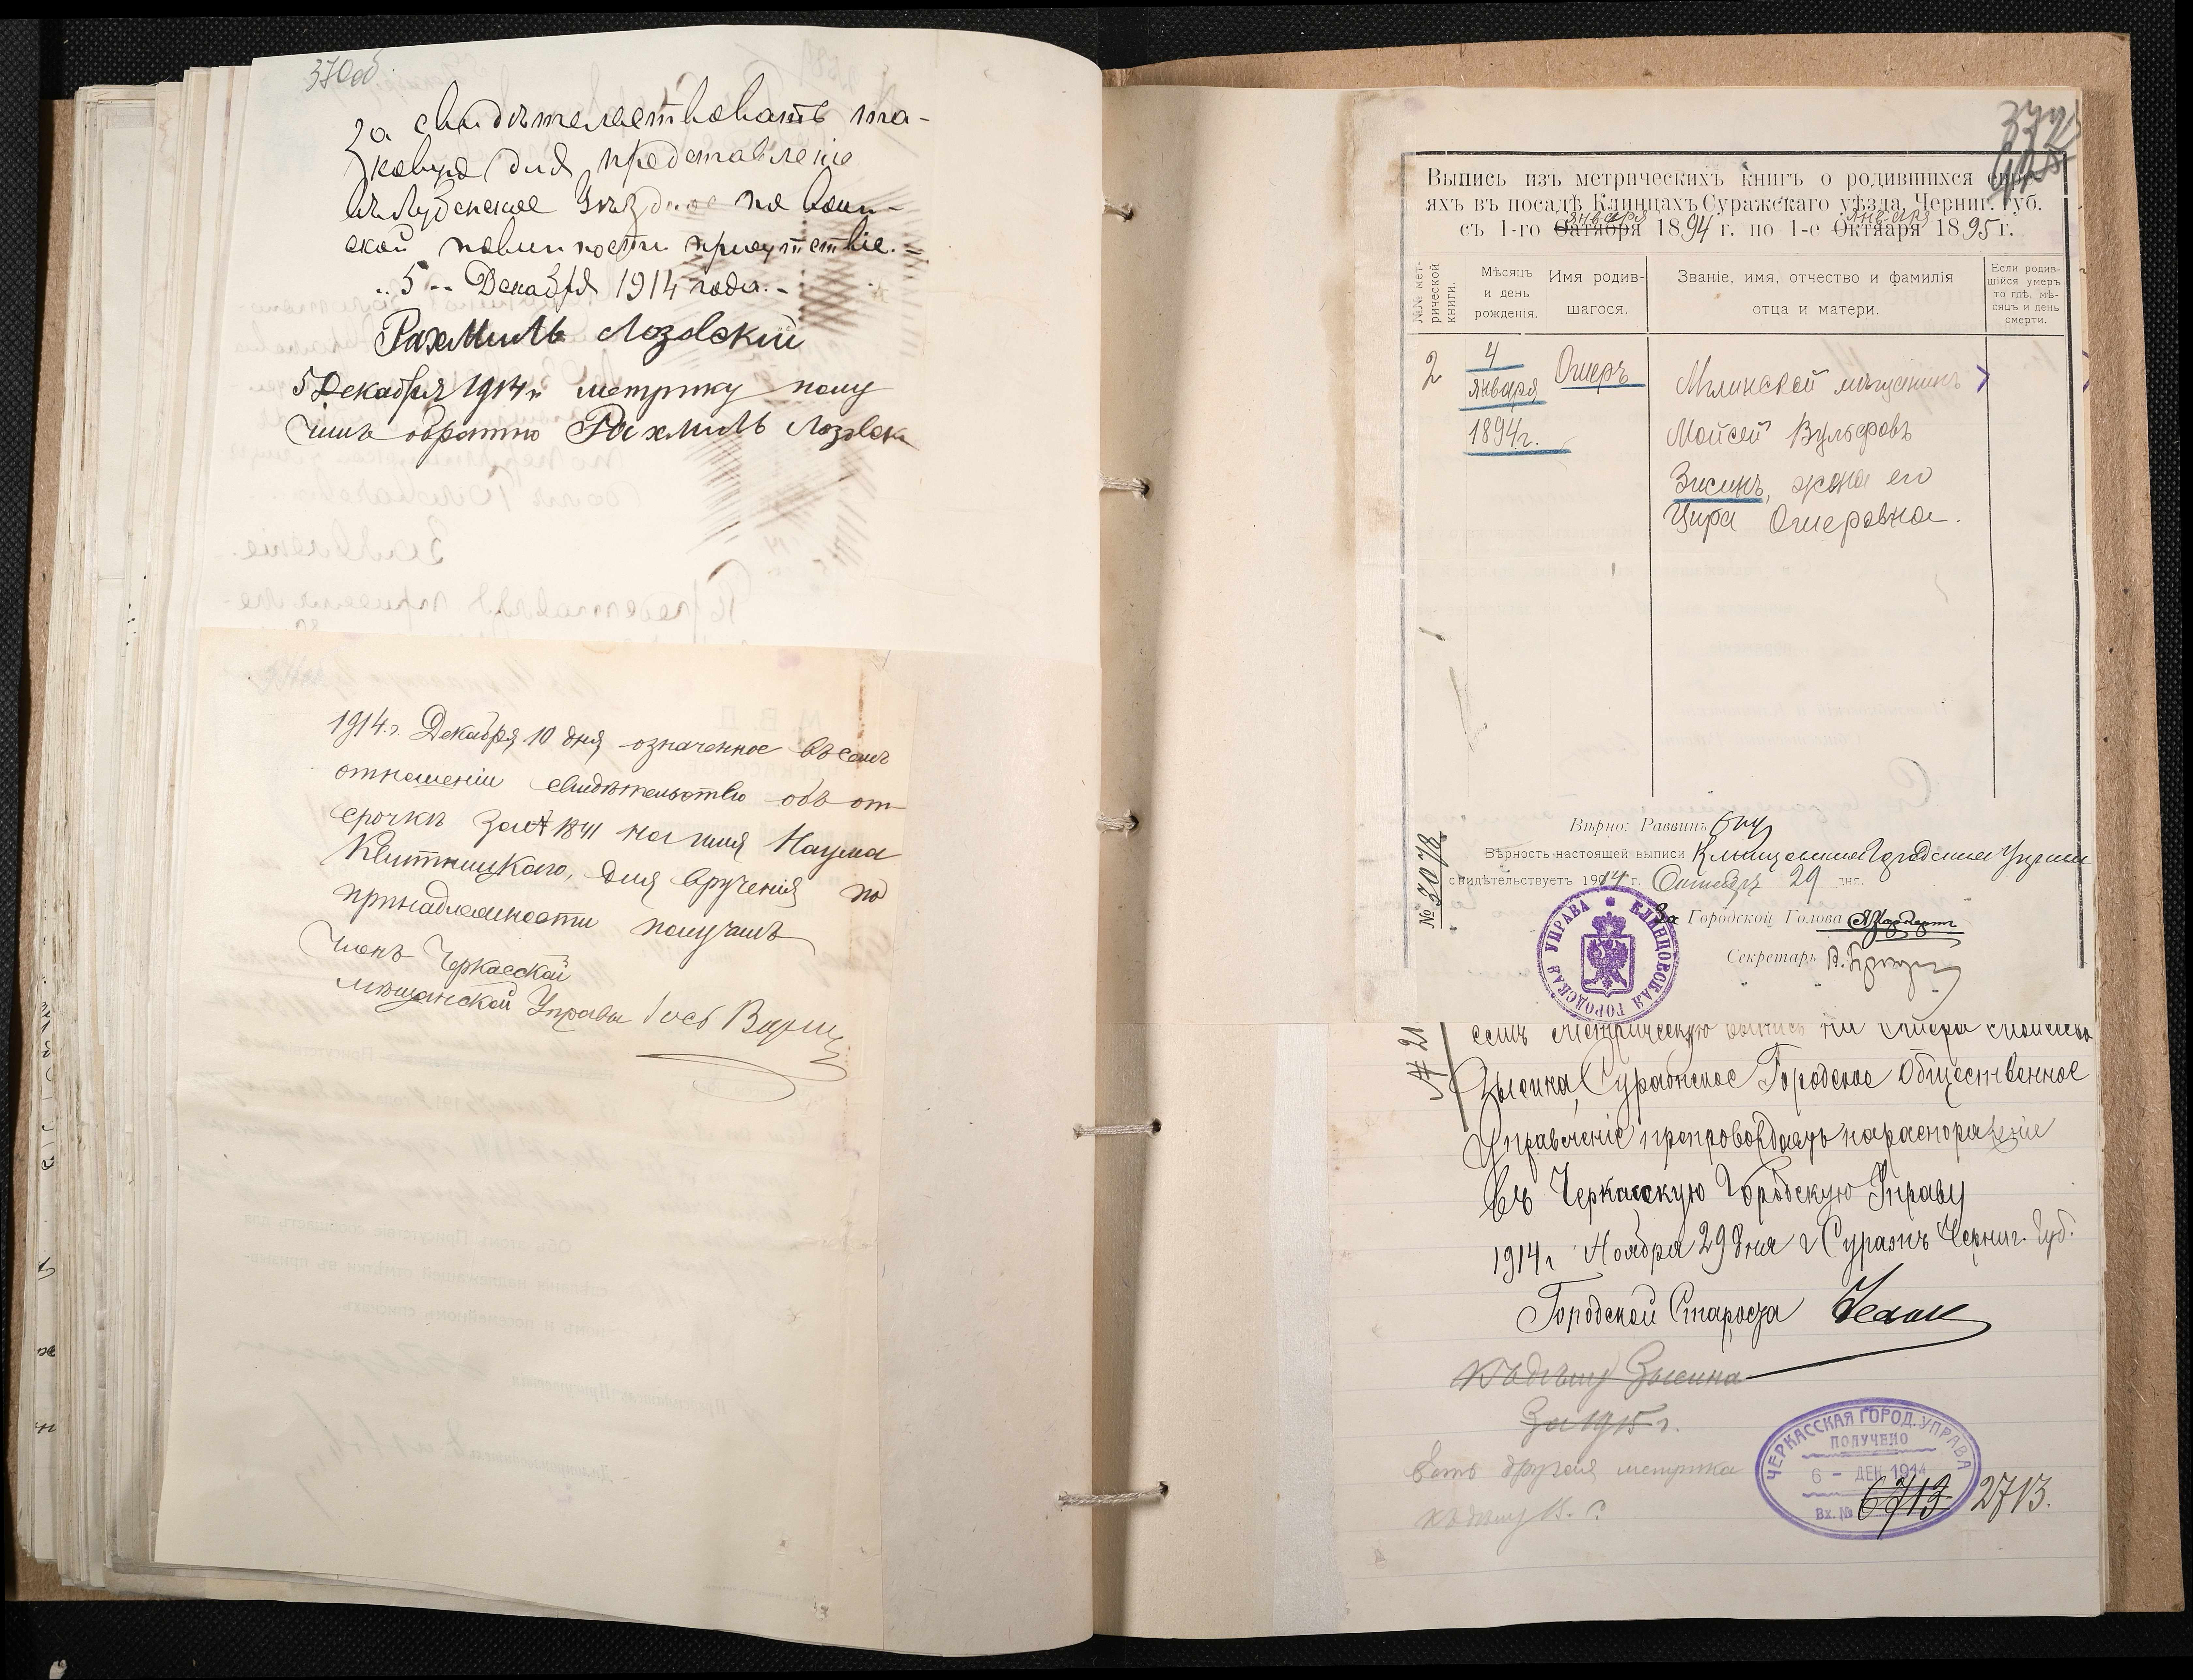 370об
За свидѣтельствовать та-
ковую для представленія
въ Лубенское Уѣздное по воин-
ской повинности присутствіе.=
"5" Декабря 1914 года.-
Рахмиль Лозовскій
5 Декабря 1914 г. метрику полу
чилъ обратно Рахмиль Лозовск
1914 г. Декабря 10 дня означенное въ семъ
отношеніи свидѣтельство объ от-
срочкѣ за № 1841 на имя Наума
Квитницкаго, для врученія по
принадлежности получилъ
Членъ Черкасской
мѣщанской Управы
372
Выпись изъ метрическихъ книгъ о родившихся
яхъ въ посадѣ Клинцахъ Суражскаго уѣзда, Черниг. губ.
января января
съ 1-го Октября 1894 г. по 1-е Октября 1895 г.
№№ мет-
рической
книги.
Мѣсяцъ
и день
рожденія.
Имя родив-
шагося.
Званіе, имя, отчество и фамилія
отца и матери.
Если родив-
шійся умеръ
то гдѣ, мѣ-
сяцъ и день
смерти.
2
4
января
1894 г.
Ошеръ
Мглинской мѣщанинъ
Мойсей Вульфовъ
Зисинъ, жена его
Цира Ошеровна.
Вѣрно: Раввинъ
Вѣрность настоящей выписи Клинцовская Городская Управа
свидѣтельствуетъ 1914 г. Октября 29 дня.
№ 3078
За Городской Голова
Секретарь
КЛИНЦОВСКАЯ ГОРОДСКАЯ УПРАВА
№ 21
семъ метрическую выпись на Ошера Моисеева
Зысина, Суражское Городское Общественное
Управленіе препровождаетъ на распоряженіе
въ Черкасскую Городскую Управу
1914 г Ноября 29 дня г Суражъ Черниг. Губ.
Городской Староста
Къ дѣлу Зысина
За 1915 г.
Есть другая метрика
къ дѣлу
ЧЕРКАССКАЯ ГОРОД. УПРАВА
ПОЛУЧЕНО
6 - ДЕК 1914
Вх. № 6713 2713.